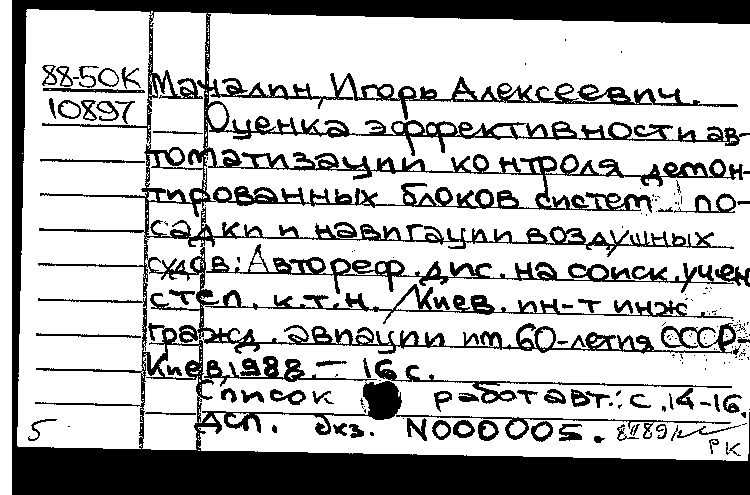 88-50К Мачалин, Игорь Алексеевич.
10897 Оценка эффективности ав-
томатизации контроля демон-
тированных блоков систем по-
садки и навигации воздушных
судов: Автореф. дис. на соиск. учен
степ. к.т.н. / Киев. ин-т инж.
гражд. авиации им. 60-летия СССР-
Киев, 1988. — 16 с.
Список работ авт.: с. 14-16.
5 ДСП. Экз. N000005.
РК